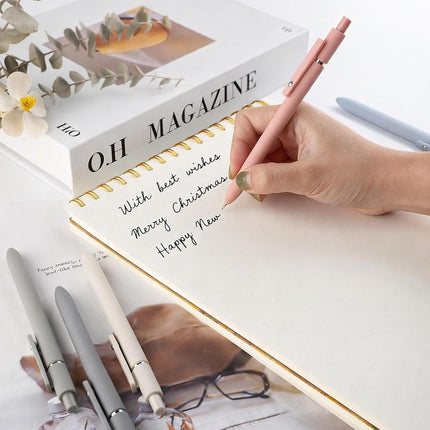 O.H MAGAZINE
With best wishes
Merry Christmas
Happy New